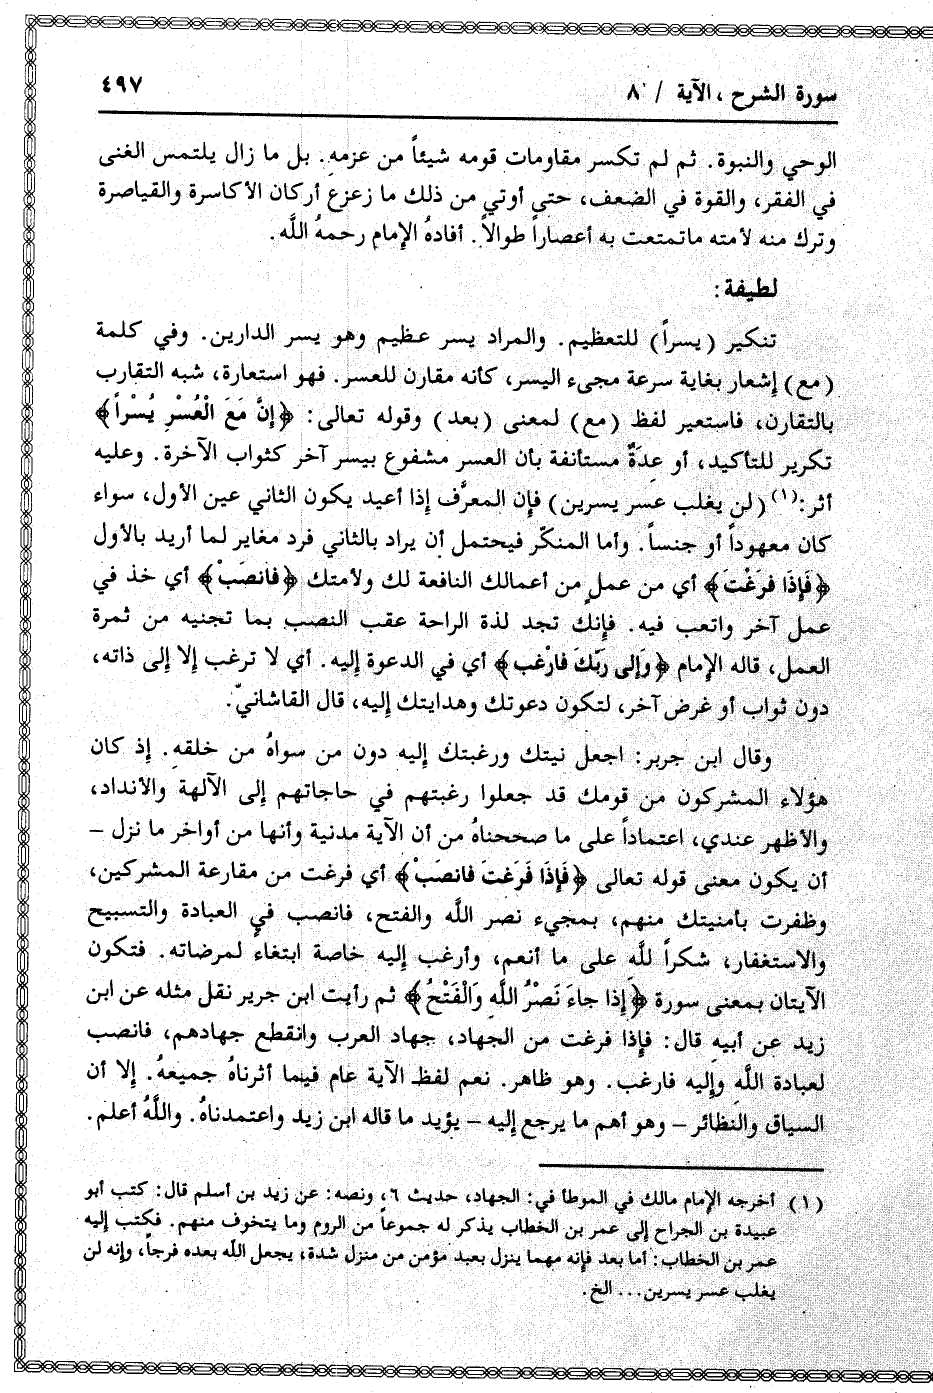 سورة الشرح ، الآية / ٨ ٤٩٧
الوحي والنبوة. ثم لم تكسر مقاومات قومه شيئاً من عزمه. بل ما زال يلتمس الغنى
في الفقر، والقوة في الضعف، حتى أوتي من ذلك ما زعزع أركان الأكاسرة والقياصرة
وترك منه لأمته ماتمتعت به أعصاراً طوالاً. أفادهُ الإمام رحمهُ اللَّه.
لطيفة:
تنكير (يسراً) للتعظيم. والمراد يسر عظيم وهو يسر الدارين. وفي كلمة
(مع) إشعار بغاية سرعة مجيء اليسر، كأنه مقارن للعسر. فهو استعارة، شبه التقارب
بالتقارن، فاستعير لفظ (مع) لمعنى (بعد) وقوله تعالى: ﴿إِنَّ مَعَ الْعُسْرِ يُسْراً﴾
تكرير للتأكيد، أو عِدةٌ مستأنفة بأن العسر مشفوع بيسر آخر كثواب الآخرة. وعليه
أثر:(١) (لن يغلب عسر يسرين) فإن المعرَّف إذا أعيد يكون الثاني عين الأول، سواء
كان معهوداً أو جنساً. وأما المنكّر فيحتمل أن يراد بالثاني فرد مغاير لما أريد بالأول
﴿فَإِذَا فَرَغْتَ﴾ أي من عملٍ من أعمالك النافعة لك ولأمتك ﴿فانصَبْ﴾ أي خذ في
عمل آخر واتعب فيه. فإنك تجد لذة الراحة عقب النصب بما تجنيه من ثمرة
العمل، قاله الإمام ﴿وَإِلى رَبِّكَ فارْغب﴾ أي في الدعوة إليه. أي لا ترغب إلا إلى ذاته،
دون ثواب أو غرض آخر، لتكون دعوتك وهدايتك إليه، قال القاشانيّ.
وقال ابن جرير: اجعل نيتك ورغبتك إليه دون من سواهُ من خلقه. إذ كان
هؤلاء المشركون من قومك قد جعلوا رغبتهم في حاجاتهم إلى الآلهة والأنداد،
والأظهر عندي، اعتماداً على ما صححناهُ من أن الآية مدنية وأنها من أواخر ما نزل –
أن يكون معنى قوله تعالى ﴿فَإِذَا فَرَغتَ فانصَبْ﴾ أي فرغت من مقارعة المشركين،
وظفرت بأمنيتك منهم، بمجيء نصر اللَّه والفتح، فانصب في العبادة والتسبيح
والاستغفار، شكراً للَّهِ على ما أنعم، وأرغب إليه خاصة ابتغاء لمرضاته. فتكون
الآيتان بمعنى سورة ﴿إِذَا جاءَ نَصْرُ اللَّهِ وَالْفَتْحُ﴾ ثم رأيت ابن جرير نقل مثله عن ابن
زيد عن أبيه قال: فإذا فرغت من الجهاد، جهاد العرب وانقطع جهادهم، فانصب
لعبادة اللَّهِ وإليه فارغب. وهو ظاهر. نعم لفظ الآية عام فيما أثرناهُ جميعهُ. إلا أن
السياق والنظائر – وهو أهم ما يرجع إليه – يؤيد ما قاله ابن زيد واعتمدناهُ. واللَّهُ أعلم.
(١) أخرجه الإمام مالك في الموطأ في: الجهاد، حديث ٦، ونصه: عن زيد بن أسلم قال: كتب أبو
عبيدة بن الجراح إلى عمر بن الخطاب يذكر له جموعاً من الروم وما يتخوف منهم. فكتب إليه
عمر بن الخطاب: أما بعد فإنه مهما ينزل بعبد مؤمن من منزل شدة، يجعل اللَّه بعده فرجاً، وإنه لن
يغلب عسر يسرين... الخ.